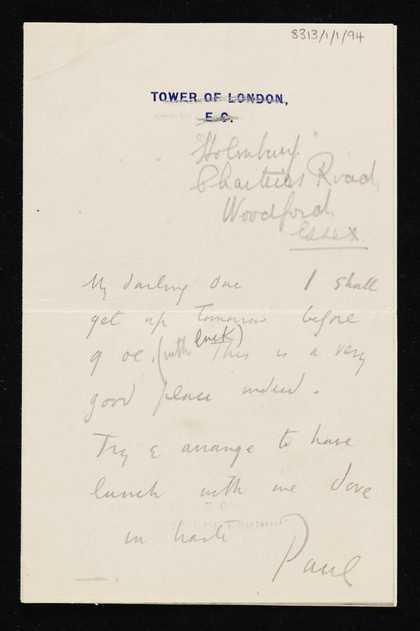 8313/1/1/94
TOWER OF LONDON,
E.C.
"Holmbury"
Charteris Road,
Woodford,
Essex.
My darling One I shall
get up tomorrow before
9 oc. (with luck) This is a very
good place indeed.
Try & arrange to have
lunch with me Love
in haste
Paul